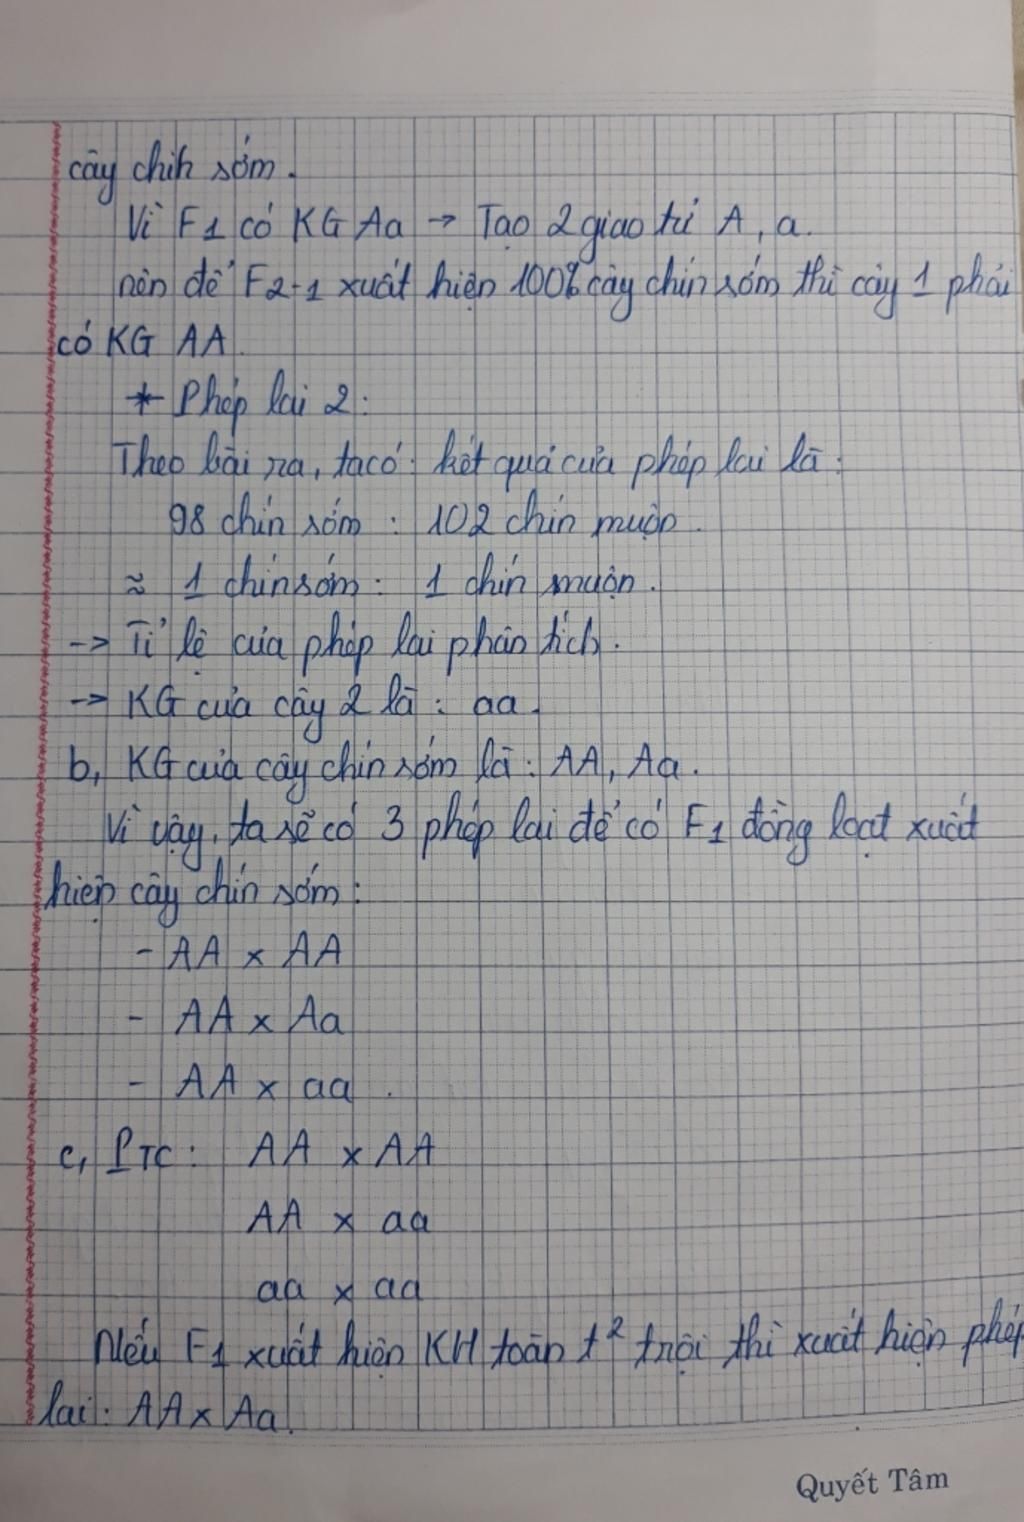 cây chín sớm.
Vì F1 có KG Aa → Tạo 2 giao tử A, a.
nên để F2-1 xuất hiện 100% cây chín sớm thì cây 1 phải
có KG AA.
* Phép lai 2:
Theo bài ra, ta có: kết quả của phép lai là:
98 chín sớm : 102 chín muộn.
≈ 1 chín sớm : 1 chín muộn.
-> Tỉ lệ của phép lai phân tích.
-> KG của cây 2 là: aa.
b, KG của cây chín sớm là: AA, Aa.
Vì vậy, ta sẽ có 3 phép lai để có F1 đồng loạt xuất
hiện cây chín sớm:
- AA x AA
- AA x Aa
- AA x aa.
c, PTC: AA x AA
AA x aa
aa x aa
Nếu F1 xuất hiện KH toàn t² trội thì xuất hiện phép
lai: AA x Aa.
Quyết Tâm